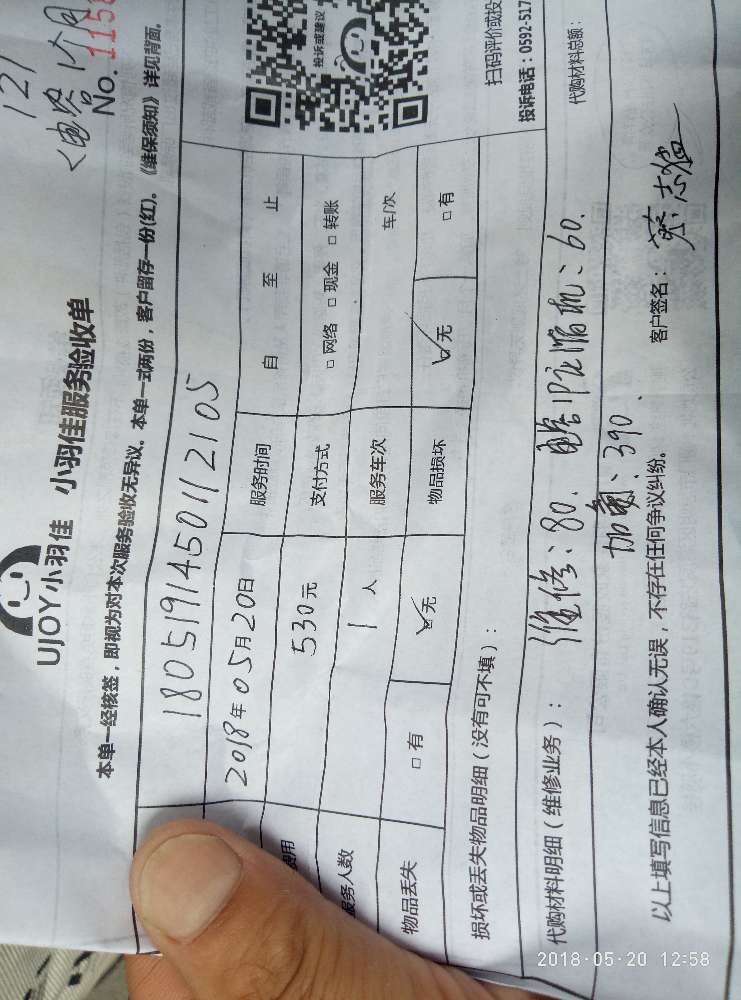 121
<电容1个月
No. 115
UJOY小羽佳 小羽佳服务验收单
本单一经核签，即视为对本次服务验收无异议。本单一式两份，客户留存一份(红)。《维保须知》详见背面。
1805191450112105
2018年05月20日 服务时间 自 至 止
费用 530元 支付方式 □ 网络 □ 现金 □ 转账
服务人数 1 人 服务车次 车/次
物品丢失 □ 有 ☑ 无 物品损坏 ☑ 无 □ 有
损坏或丢失物品明细（没有可不填）：
代购材料明细（维修业务）： 维修：80. 电容1P
机：60.
390.
代购材料总额：
以上填写信息已经本人确认无误，不存在任何争议纠纷。 客户签名： 蔡志猛
投诉或建议
扫码评价或投
投诉电话：0592-517
2018-05-20 12:58